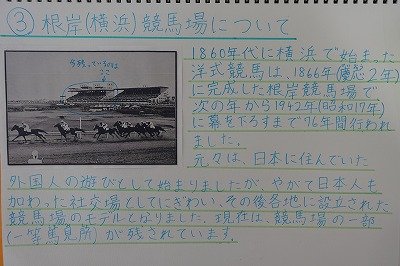 ③ 根岸(横浜)競馬場について
1860年代に横浜で始まった
洋式競馬は、1866年(慶応2年)
に完成した根岸競馬場で
次の年から1942年(昭和17年)
に幕を下ろすまで76年間行われ
ました。
元々は、日本に住んでいた
外国人の遊びとして始まりましたが、やがて日本人も
加わった社交場としてにぎわい、その後各地に設立された
競馬場のモデルとなりました。現在は、競馬場の一部
(一等馬見所)が残されています。